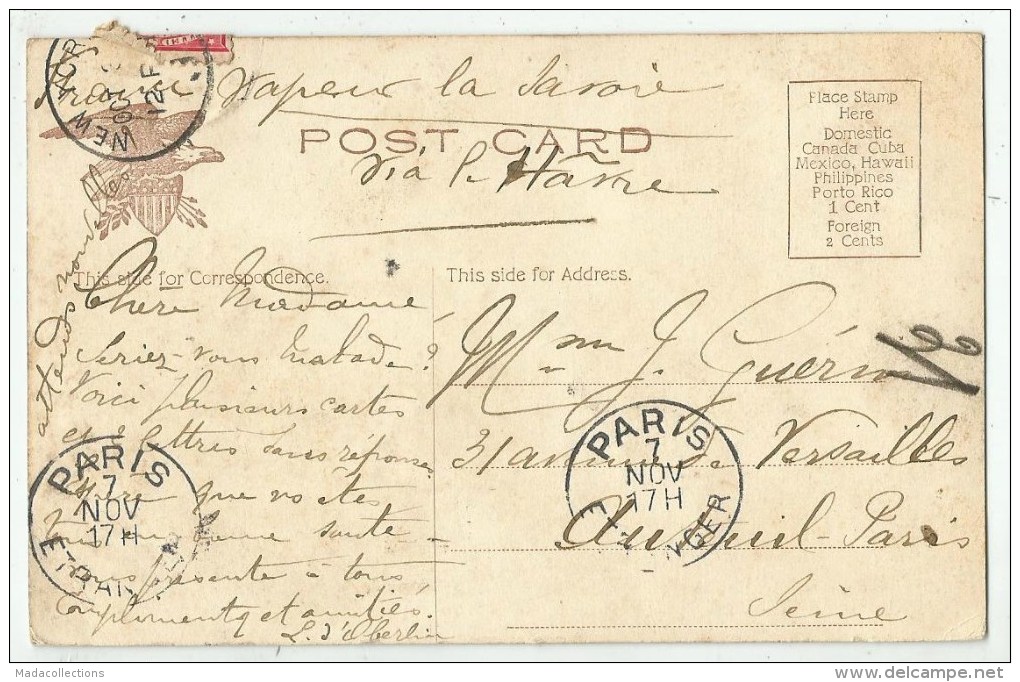 NEW YOR
OCT 3
12 P
France Vapeur la Savoie
POST CARD
via le Hâvre
Place Stamp
Here
Domestic
Canada Cuba
Mexico, Hawaii
Philippines
Porto Rico
1 Cent
Foreign
2 Cents
attends nouvelles
This side for Correspondence.
This side for Address.
Chère Madame
Seriez-vous malade?
Voici plusieurs cartes
et 2 lettres sans réponse
que vos êtes
en bonne santé
vous présente à tous
compliments et amitiés.
L. d'Oberlin
Mme J. Guérin
31 avenue de Versailles
Auteuil-Paris
Seine
PARIS
7
NOV
17H
ETRANGER
PARIS
7
NOV
17H
E NGER
Madacollections
www.delcampe.net